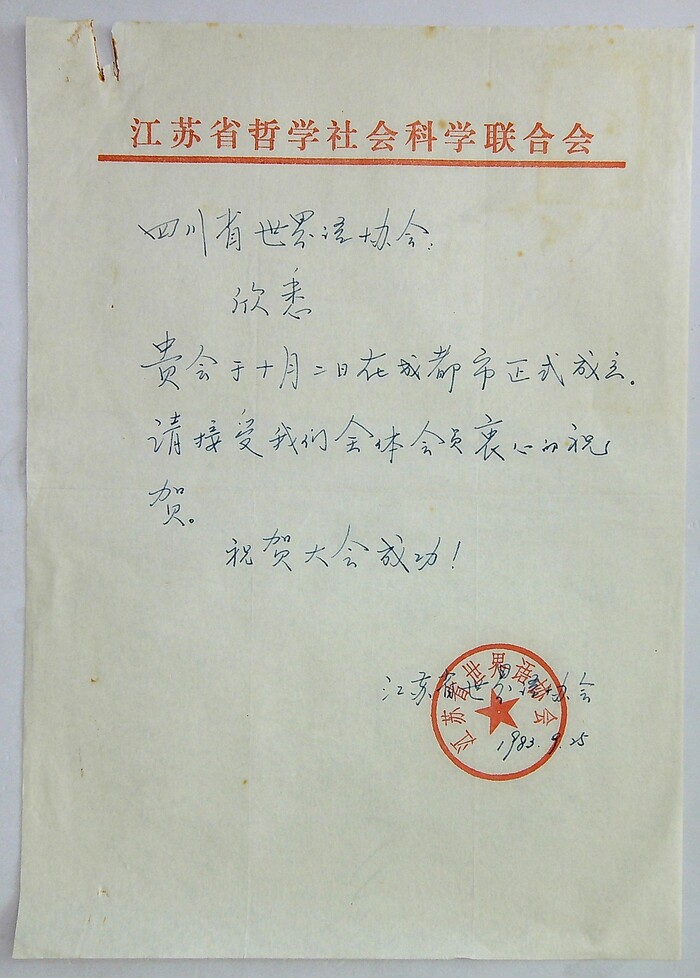 江苏省哲学社会科学联合会
四川省世界语协会:
欣悉
贵会于十月二日在成都市正式成立。
请接受我们全体会员衷心的祝
贺。
祝贺大会成功!
江苏省世界语协会
江苏省世界语协会
1983.9.25